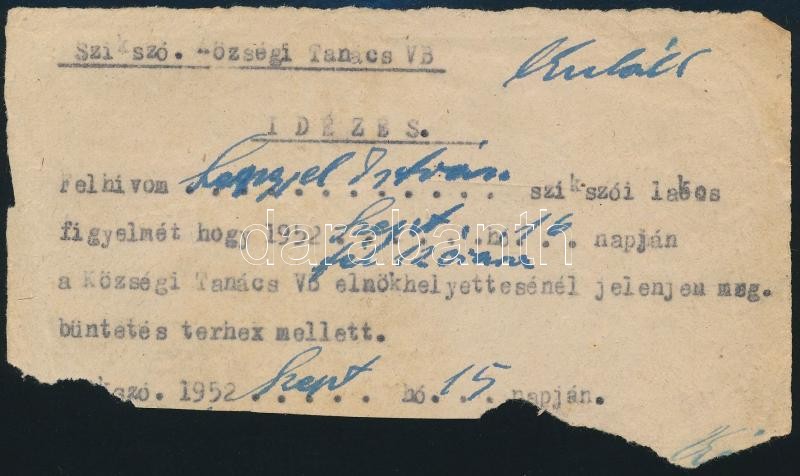 Szikszó. Községi Tanács VB
I D É Z É S.
Felhivom Lengyel István szikszói lakos
figyelmét hogy 1952 Szept hó 16 napján
a Községi Tanács VB elnökhelyettesénél jelenjem meg.
büntetés terhex mellett.
kszó. 1952 Szept hó. 15 napján.
darabanth.com